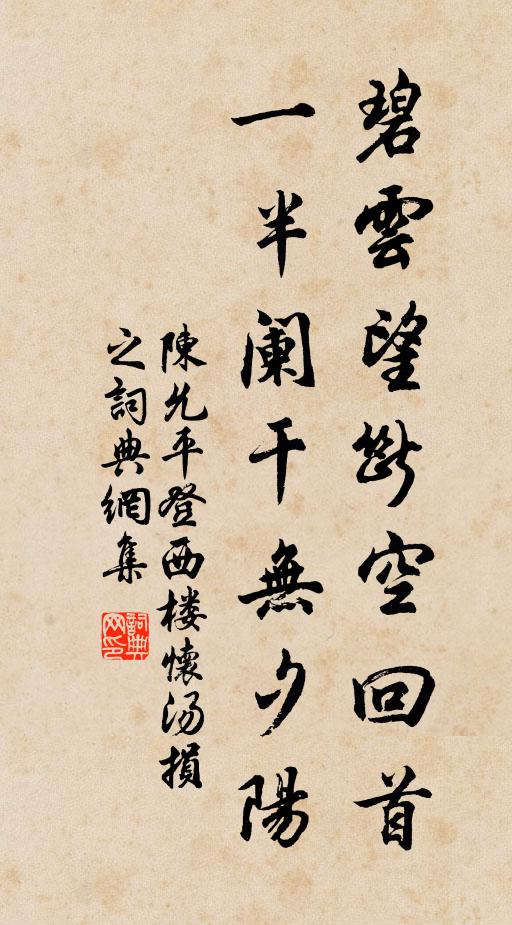 碧雲望斷空回首
一半闌干無夕陽
陳允平登西楼懷湯損
之詞典網集
詞典网印